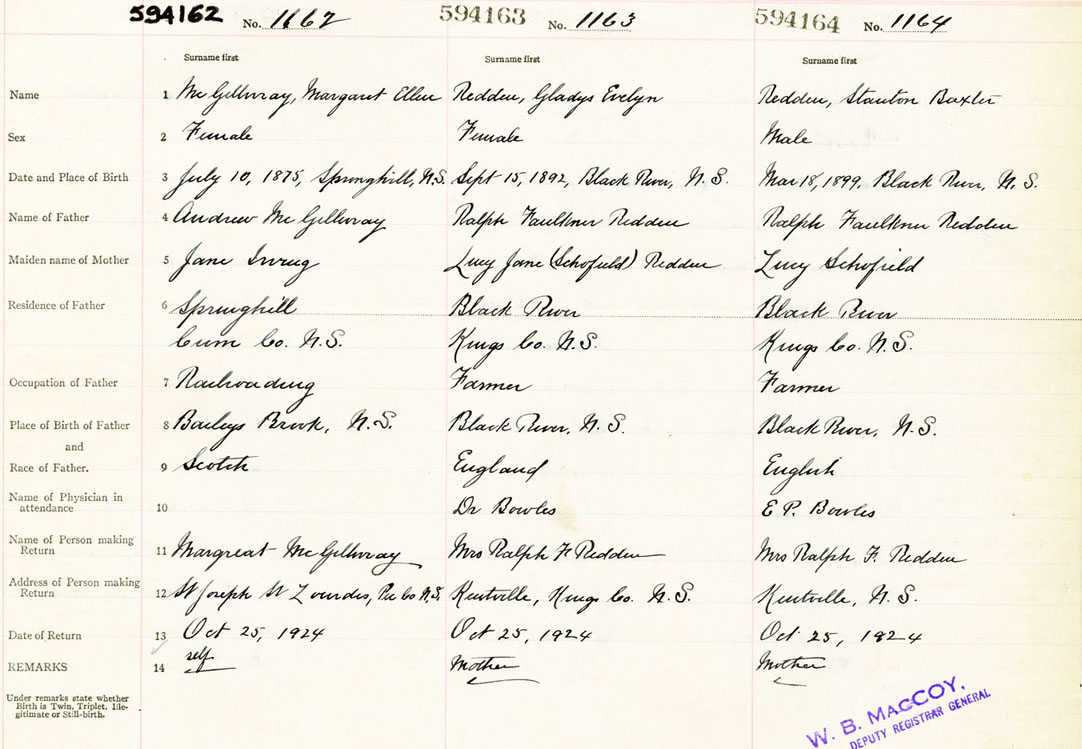 594162 No. 1162 594163 No. 1163 594164 No. 1164
Surname first Surname first Surname first
Name 1 McGillivray, Margaret Ellen Redden, Gladys Evelyn Redden, Stanton Baxter
Sex 2 Female Female Male
Date and Place of Birth 3 July 10, 1875, Springhill, N.S. Sept 15, 1892, Black River, N.S. Mar 18, 1899, Black River, N.S.
Name of Father 4 Andrew McGillivray Ralph Faulkner Redden Ralph Faulkner Redden
Maiden name of Mother 5 Jane Lucy Jane (Schofield) Redden Lucy Schofield
Residence of Father 6 Springhill Black River Black River
Cum Co. N.S. Kings Co. N.S. Kings Co. N.S.
Occupation of Father 7 Railroading Farmer Farmer
Place of Birth of Father 8 Baileys Brook, N.S. Black River, N.S. Black River, N.S.
and
Race of Father. 9 Scotch England English
Name of Physician in
attendance 10 Dr Bowles E P. Bowles
Name of Person making
Return 11 Margreat McGillivray Mrs Ralph F Redden Mrs Ralph F. Redden
Address of Person making
Return 12 St Joseph St Lourdes, Pic Co N.S. Kentville, Kings Co. N.S. Kentville, N.S.
Date of Return 13 Oct 25, 1924 Oct 25, 1924 Oct 25, 1924
REMARKS 14 self Mother Mother
Under remarks state whether
Birth is Twin, Triplet, Ille-
gitimate or Still-birth.
W. B. MACCOY,
DEPUTY REGISTRAR GENERAL